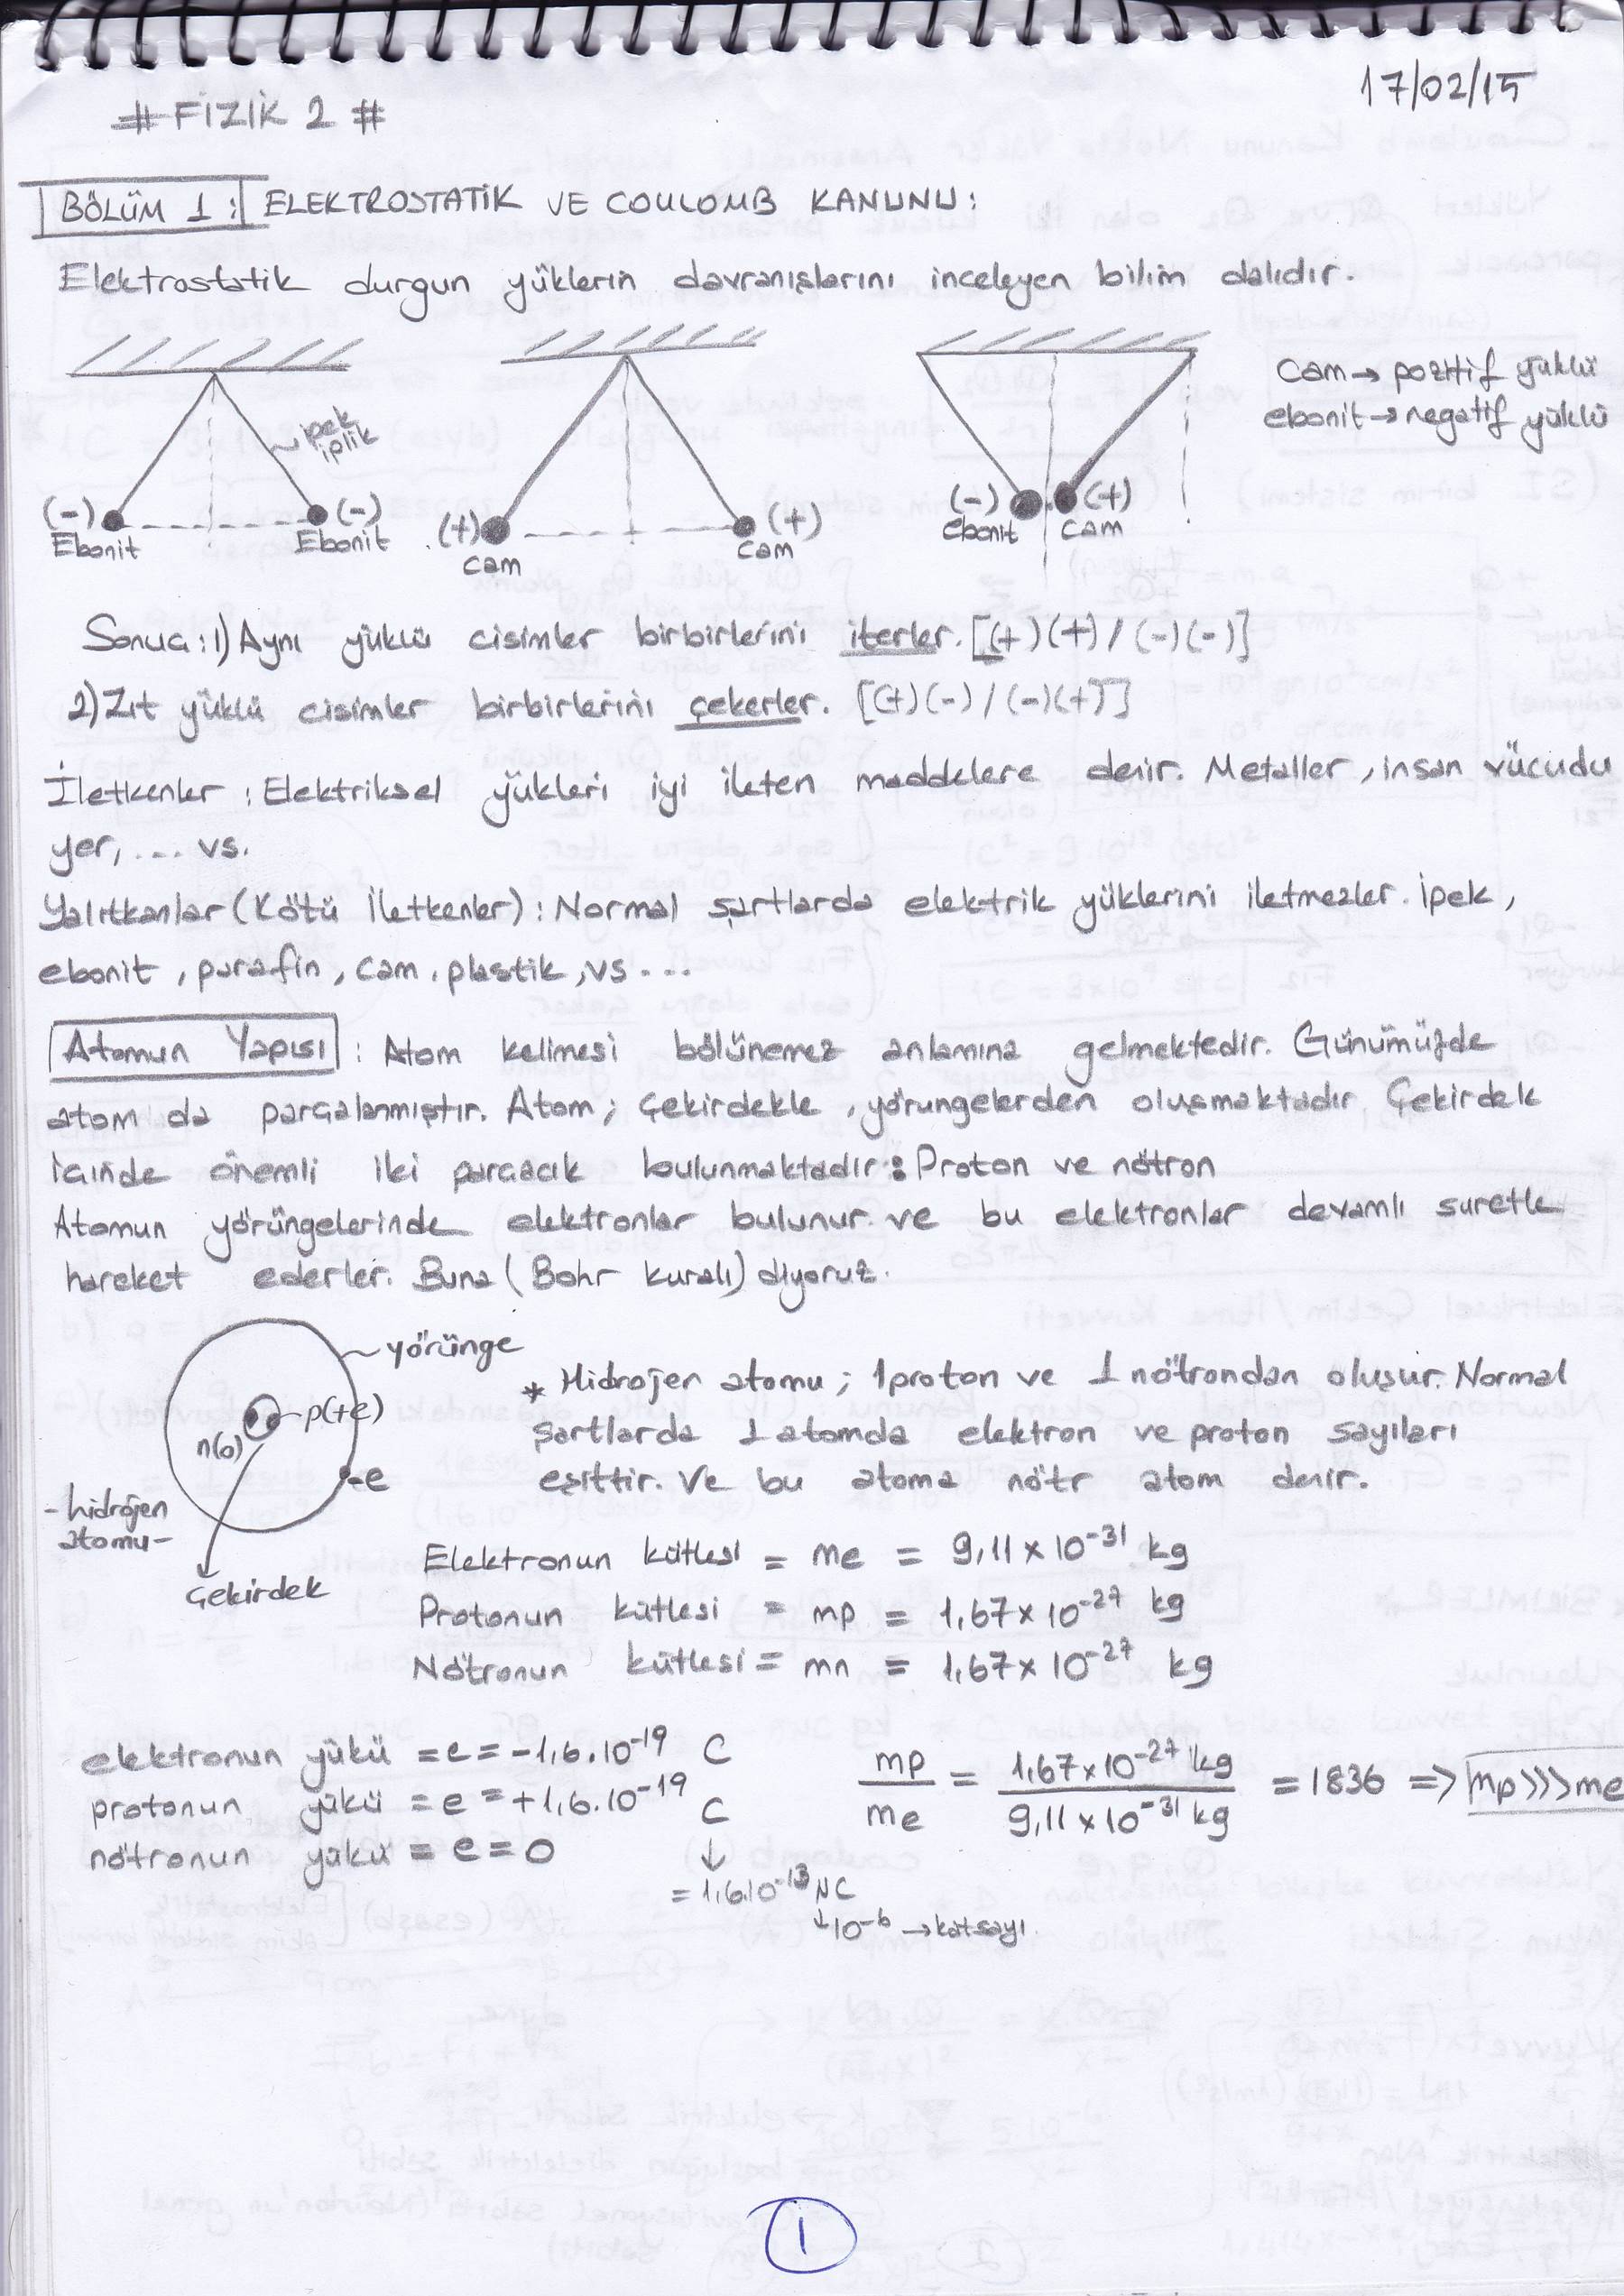 17/02/15
# FİZİK 2 #
BÖLÜM 1: ELEKTROSTATİK VE COULOMB KANUNU:
Elektrostatik durgun yüklerin davranışlarını inceleyen bilim dalıdır.
ipek iplik
(-) Ebonit (-) Ebonit
(+) cam (+) cam
(-) ebonit (+) cam
cam → pozitif yüklü
ebonit → negatif yüklü
Sonuç: 1) Aynı yüklü cisimler birbirlerini iterler. [(+)(+) / (-)(-)]
2) Zıt yüklü cisimler birbirlerini çekerler. [(+)(-) / (-)(+)]
İletkenler : Elektriksel yükleri iyi ileten maddelere denir. Metaller, insan vücudu
yer, ... vs.
Yalıtkanlar (Kötü İletkenler) : Normal şartlarda elektrik yüklerini iletmezler. İpek,
ebonit, parafin, cam, plastik, vs ...
Atomun Yapısı : Atom kelimesi bölünemez anlamına gelmektedir. Günümüzde
atom da parçalanmıştır. Atom; Çekirdekle, yörüngelerden oluşmaktadır. Çekirdek
içinde önemli iki parçacık bulunmaktadır: Proton ve nötron
Atomun yörüngelerinde elektronlar bulunur. ve bu elektronlar devamlı suretle
hareket ederler. Buna (Bohr kuralı) diyoruz.
yörünge
p(+e)
n(o)
-e
-hidrojen atomu-
Çekirdek
* Hidrojen atomu; 1 proton ve 1 nötrondan oluşur. Normal
şartlarda 1 atomda elektron ve proton sayıları
eşittir. Ve bu atoma nötr atom denir.
Elektronun kütlesi = me = 9,11 x 10⁻³¹ kg
Protonun kütlesi = mp = 1,67 x 10⁻²⁷ kg
Nötronun kütlesi = mn = 1,67 x 10⁻²⁷ kg
elektronun yükü = e = -1,6.10⁻¹⁹ C
protonun yükü = e = +1,6.10⁻¹⁹ C
nötronun yükü = e = 0
↓
= 1,6.10⁻¹³ µC
↓ 10⁻⁶ → katsayı.
mp/me = 1,67x10⁻²⁷ kg / 9,11x10⁻³¹ kg = 1836 => mp>>>me
1